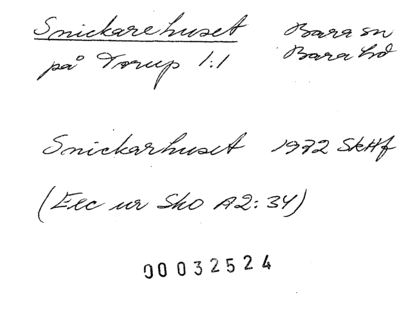 Snickarehuset Bara sn
på Torup 1:1 Bara hd
Snickarhuset 1972 SkHf
(Exc ur Sko A2:34)
00032524